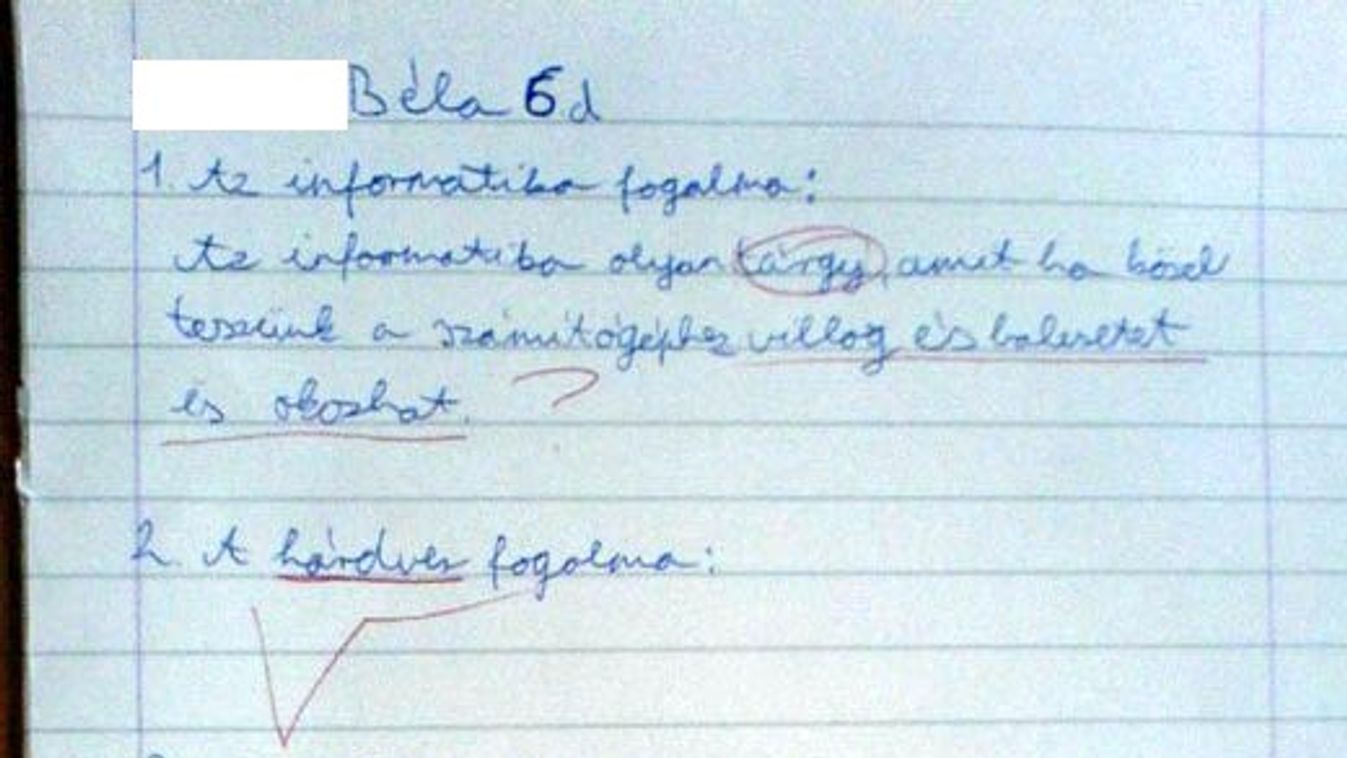 Béla 6.d
1. Az informatika fogalma:
Az informatika olyan tárgy, amit ha közel
teszünk a számítógéphez villog és balesetet
és okozhat. ?
2. A hárdver fogalma: